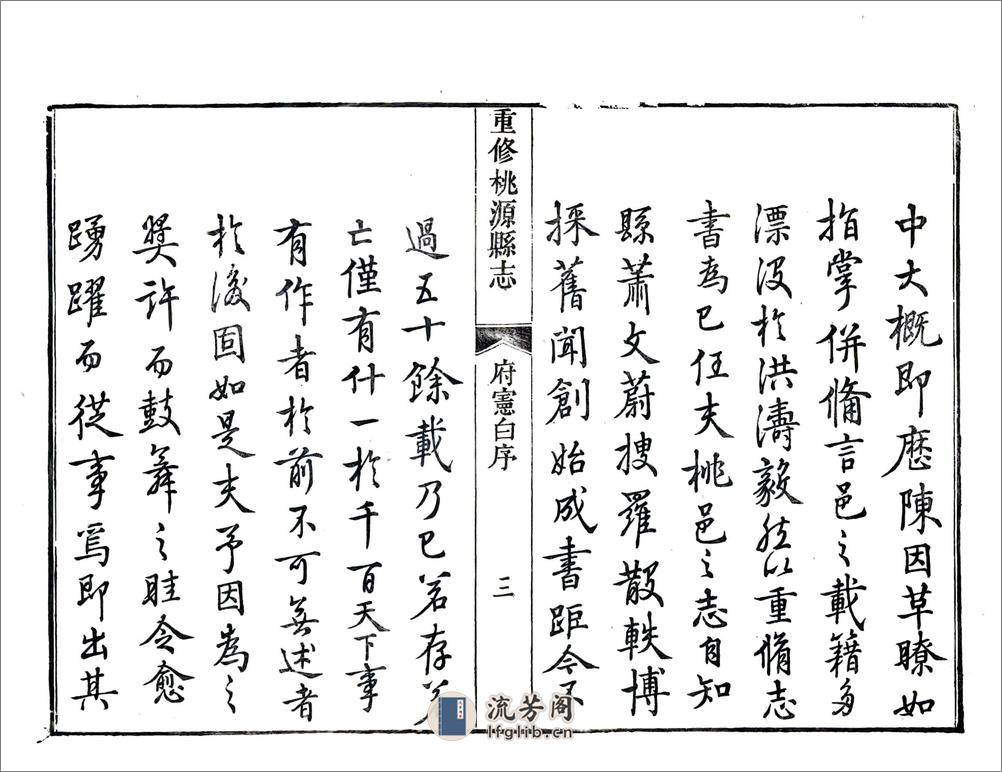 中大概即歷陳因革瞭如
指掌併備言邑之載籍多
漂沒於洪濤毅然以重脩志
書為己任夫桃邑之志自知
縣蕭文蔚搜羅散軼博
採舊聞創始成書距今不
重修桃源縣志
府憲白序
三
過五十餘載乃已若存若
亡僅有什一於千百天下事
有作者於前不可無述者
於後固如是夫予因為之
獎許而鼓舞之眭令愈
踴躍而從事焉即出其
流芳阁
lfglib.cn